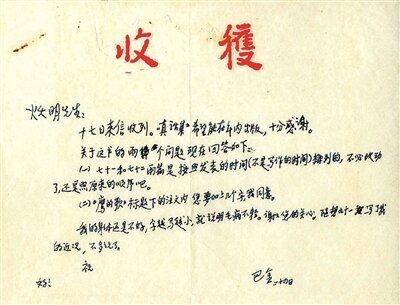 收穫
炳明先生：
十七日来信收到。“真话集”希望能在年内出版，十分感谢。
关于这书的两个问题现在回答如下：
(一)七十一和七十二两篇是按照发表的时间(不是写作的时间)排列的，不必改动
了，还是照原来的顺序吧。
(二)“鹰的歌”标题下的注文内您要加上几个字我同意。
我的身体还是不好，字越写越小，就说明毛病不轻。谢谢您的关心。
的近况，不多谈了。
祝
好！
巴金